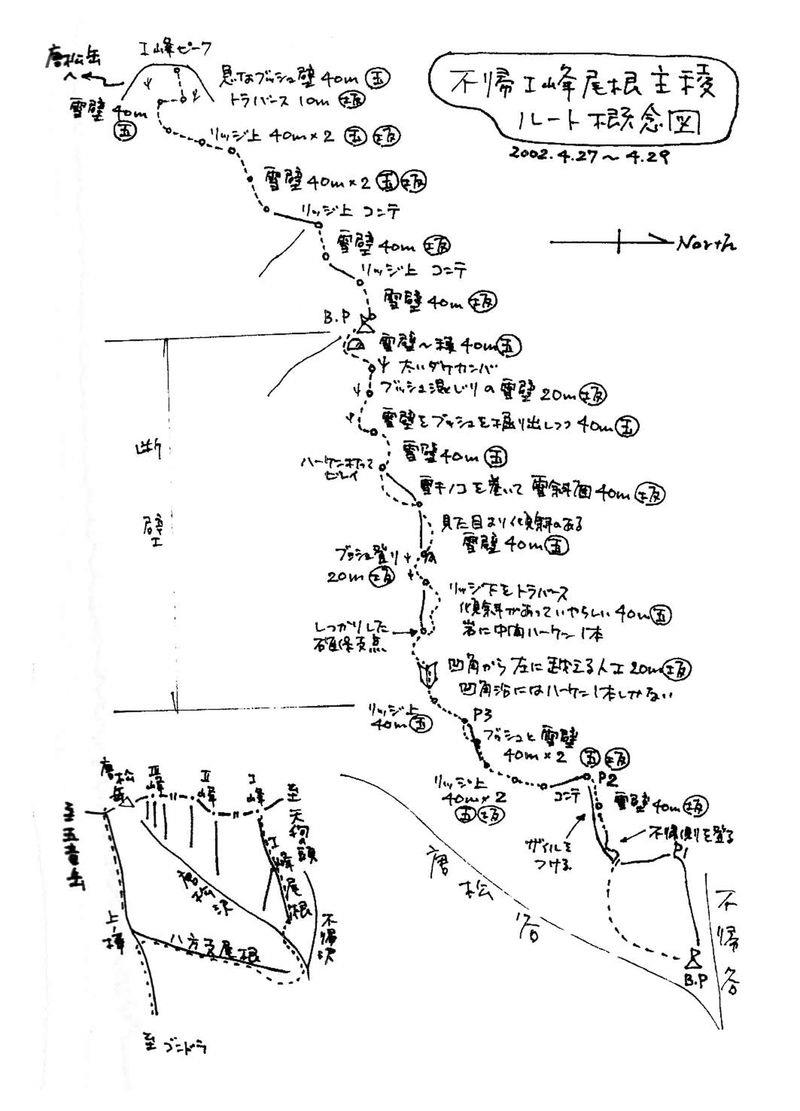 不帰I峰尾根主稜
ルート概念図
2002.4.27～4.29
North
唐松岳
I峰ピーク
急なブッシュ壁 40m 五
トラバース 10m 坂
雪壁 40m
五
リッジ上 40m×2 五 坂
雪壁 40m×2 五 坂
リッジ上 コンテ
雪壁 40m 坂
リッジ上 コンテ
雪壁 40m 坂
B.P
雪壁～稜 40m 五
太いダケカンバ
ブッシュ混じりの雪壁 20m 坂
雪壁をブッシュを掘り出しつつ 40m 五
雪壁 40m 五
ハーケン打って
ビレイ
雪キノコを巻いて 雪斜面 40m 坂
見た目より傾斜のある
雪壁 40m 五
ブッシュ登り
20m 坂
リッジ下をトラバース
傾斜があっていやらしい 40m 五
岩に中間ハーケン 1本
しっかりした
確保支点
凹角から左に越える人工 20m 坂
凹角沿にはハーケン1本しかない
リッジ上
40m 五
P3
ブッシュと雪壁
40m×2 五 坂
リッジ上
40m×2
五 坂
コンテ
P2
雪壁 40m 坂
不帰側を登る
ザイルを
つける
P1
B.P
断
壁
唐
松
谷
不
帰
谷
唐松岳
III峰
II峰
I峰
至天狗の頭
至五竜岳
唐松沢
I峰尾根
不帰沢
上ノ樺
八方支尾根
至ゴンドラ